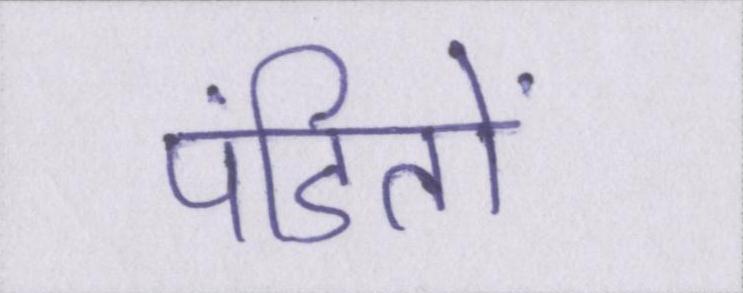 पंडितों